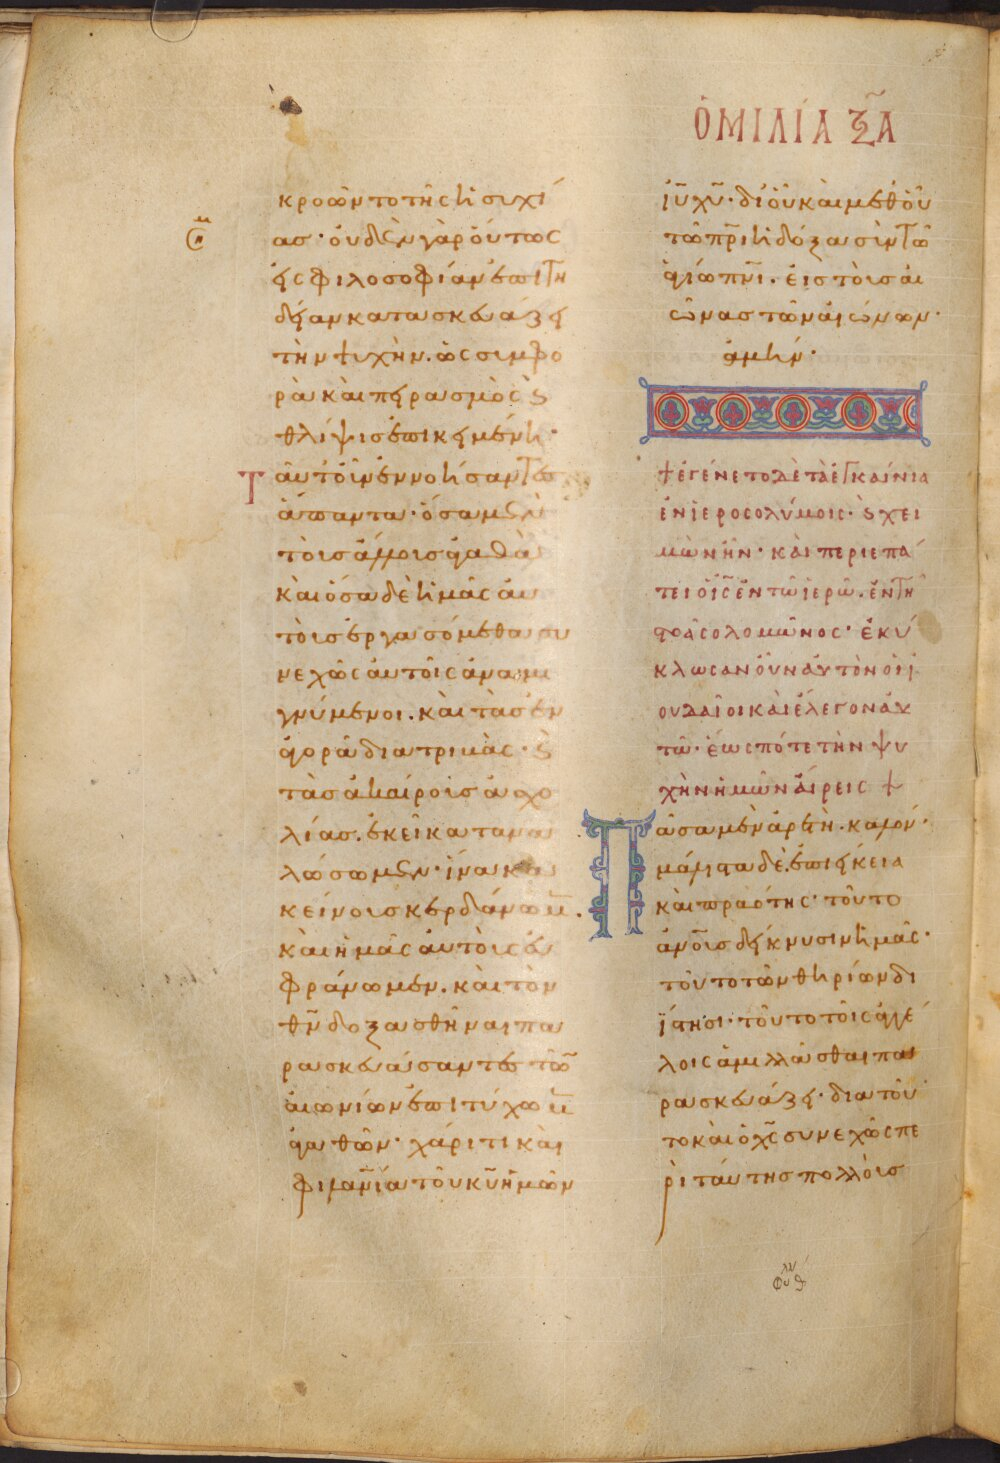 ὉΜΙΛΊΑ ξ̅α̅
κροῶντο τῆς ἡσυχί
ας· οὐδὲν γὰρ οὕτως
εἰς φιλοσοφίαν ἐπιτη
δείαν κατασκευάζει
τὴν ψυχὴν. ὡς συμφο
ρὰ καὶ πειρασμὸς ϗ
θλίψις ἐπικειμένη·
Ταῦτ' οὖν ἐννοήσαντες
ἅπαντα· ὅσα μὲν
τοῖς ἄλλοις ἀγαθὰ
καὶ ὅσα δὲ ἡμᾶς αὐ
τοὺς ἐργασόμεθα συ
νεχῶς αὐτοῖς ἀναμι
γνύμενοι. καὶ τὰς ἐν
ἀγορᾶ διατριβὰς· ϗ
τὰς ἀκαίρους ἀσχο
λίας. ἐκεῖ καταναλώσωμεν·
ἵνα κἀ
κείνους κερδάνωμ̅.
καὶ ἡμᾶς αὐτοὺς εὐ
φράνωμεν. καὶ τὸν
θ̅ν̅ δοξασθῆναι πα
ρασκευάσαντες τῶ̅
αἰωνίων ἐπιτύχωμ̅ ἀ
γαθῶν· χάριτι καὶ
φιλαν̅ία τοῦ κ̅υ̅ ἡμῶν
ἰ̅υ̅ χ̅υ̅· δι' οὗ καὶ μεθ' οὗ
τῶ π̅ρ̅ι̅ ἡ δόξα σὺν τῶ
ἁγίω π̅ν̅ι̅. εἰς τοὺς αἰ
ῶνας τῶν αἰώνων·
ἀμήν·
☩ ἐγένετο δὲ τὰ ἐγκαίνια
ἐν ἱεροσολύμοις· ϗ χει
μὼν ἦν· καὶ περιεπά
τει ὁ ι̅ς̅ ἐν τῶ ἱερῶ. ἐν τῆ
στοᾶ σολομῶνος· ἐκύ
κλωσαν οὖν αὐτὸν οἱ ἰ
ουδαῖοι καὶ ἔλεγον αὐ
τῶ· ἕως πότε τὴν ψυ
χὴν ἡμῶν αἴρεις ☩
Πᾶσα μὲν ἀρετὴ. καλόν·
μάλιστα δὲ ἐπιείκεια
καὶ πραότης· τοῦτο
ἀν̅οῦς δείκνυσιν ἡμᾶς·
τοῦτο τῶν θηρίων δι
ΐστησι· τοῦτο τοῖς ἀγγέ
λοις ἁμιλλᾶσθαι πα
ρασκευάζει· διὰ τοῦ
το καὶ ὁ χ̅ς̅ συνεχῶς πε
ρὶ ταύτης πολλοὺς